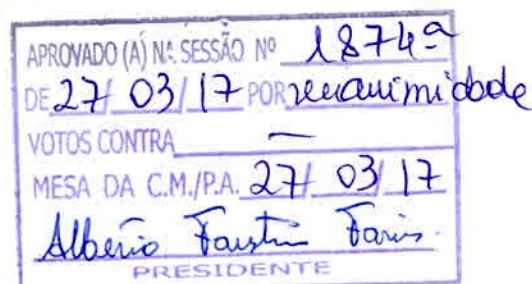 APROVADO (A) NA SESSÃO Nº 1874ª
DE 27/ 03/ 17 POR unanimidade
VOTOS CONTRA —
MESA DA C.M./P.A. 27/ 03/ 17
Albério Faustin Faris.
PRESIDENTE